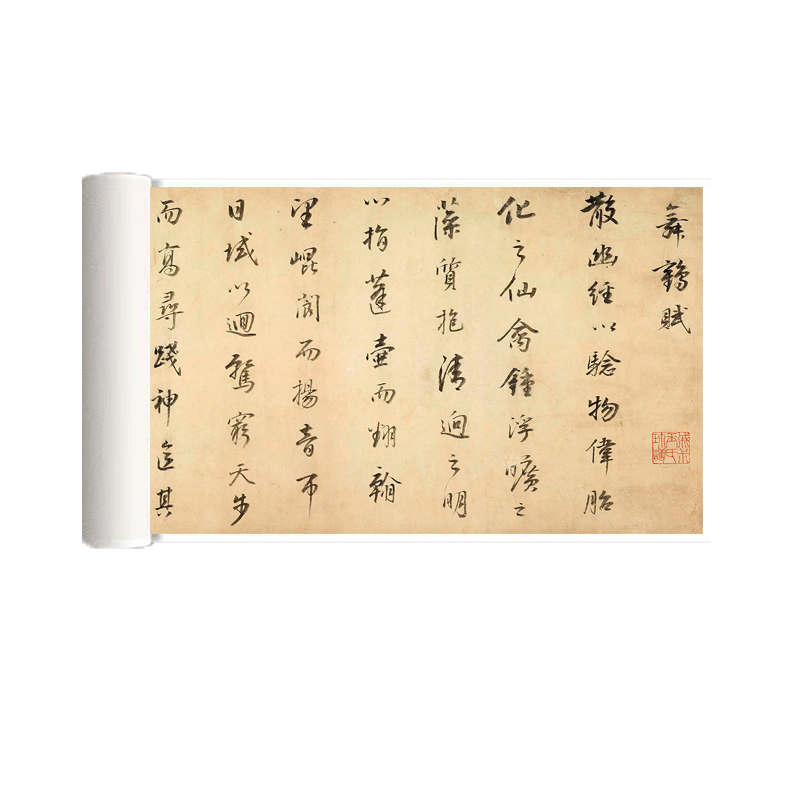 舞鶴賦
散幽經以驗物偉胎
化之仙禽鍾浮曠之
藻質抱清迥之明
心指蓬壺而翻翰
望崐閬而揚音帀
日域以迴騖窮天步
而高尋踐神區其